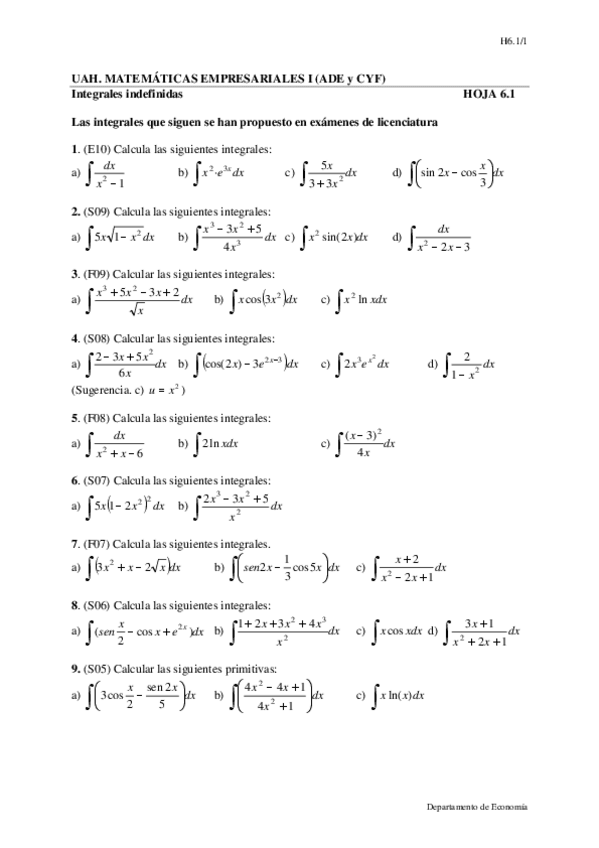 H6.1/1
UAH. MATEMÁTICAS EMPRESARIALES I (ADE y CYF)
Integrales indefinidas HOJA 6.1
Las integrales que siguen se han propuesto en exámenes de licenciatura
1. (E10) Calcula las siguientes integrales:
a) ∫ dx/(x² − 1) b) ∫ x²·e^(3x) dx c) ∫ 5x/(3 + 3x²) dx d) ∫ (sin 2x − cos x/3) dx
2. (S09) Calcula las siguientes integrales:
a) ∫ 5x√(1 − x²) dx b) ∫ (x³ − 3x² + 5)/(4x³) dx c) ∫ x² sin(2x)dx d) ∫ dx/(x² − 2x − 3)
3. (F09) Calcular las siguientes integrales:
a) ∫ (x³ + 5x² − 3x + 2)/√x dx b) ∫ x cos(3x²)dx c) ∫ x² ln xdx
4. (S08) Calcula las siguientes integrales:
a) ∫ (2 − 3x + 5x²)/(6x) dx b) ∫ (cos(2x) − 3e^(2x−3))dx c) ∫ 2x³e^(x²) dx d) ∫ 2/(1 − x²) dx
(Sugerencia. c) u = x²)
5. (F08) Calcula las siguientes integrales:
a) ∫ dx/(x² + x − 6) b) ∫ 2 ln xdx c) ∫ (x − 3)²/(4x) dx
6. (S07) Calcula las siguientes integrales:
a) ∫ 5x(1 − 2x²)² dx b) ∫ (2x³ − 3x² + 5)/x² dx
7. (F07) Calcula las siguientes integrales.
a) ∫ (3x² + x − 2√x)dx b) ∫ (sen2x − 1/3 cos 5x) dx c) ∫ (x + 2)/(x² − 2x + 1) dx
8. (S06) Calcula las siguientes integrales:
a) ∫ (sen x/2 − cos x + e^(2x))dx b) ∫ (1 + 2x + 3x² + 4x³)/x² dx c) ∫ x cos xdx d) ∫ (3x + 1)/(x² + 2x + 1) dx
9. (S05) Calcular las siguientes primitivas:
a) ∫ (3 cos x/2 − sen 2x/5) dx b) ∫ ((4x² − 4x + 1)/(4x² + 1)) dx c) ∫ x ln(x)dx
Departamento de Economía